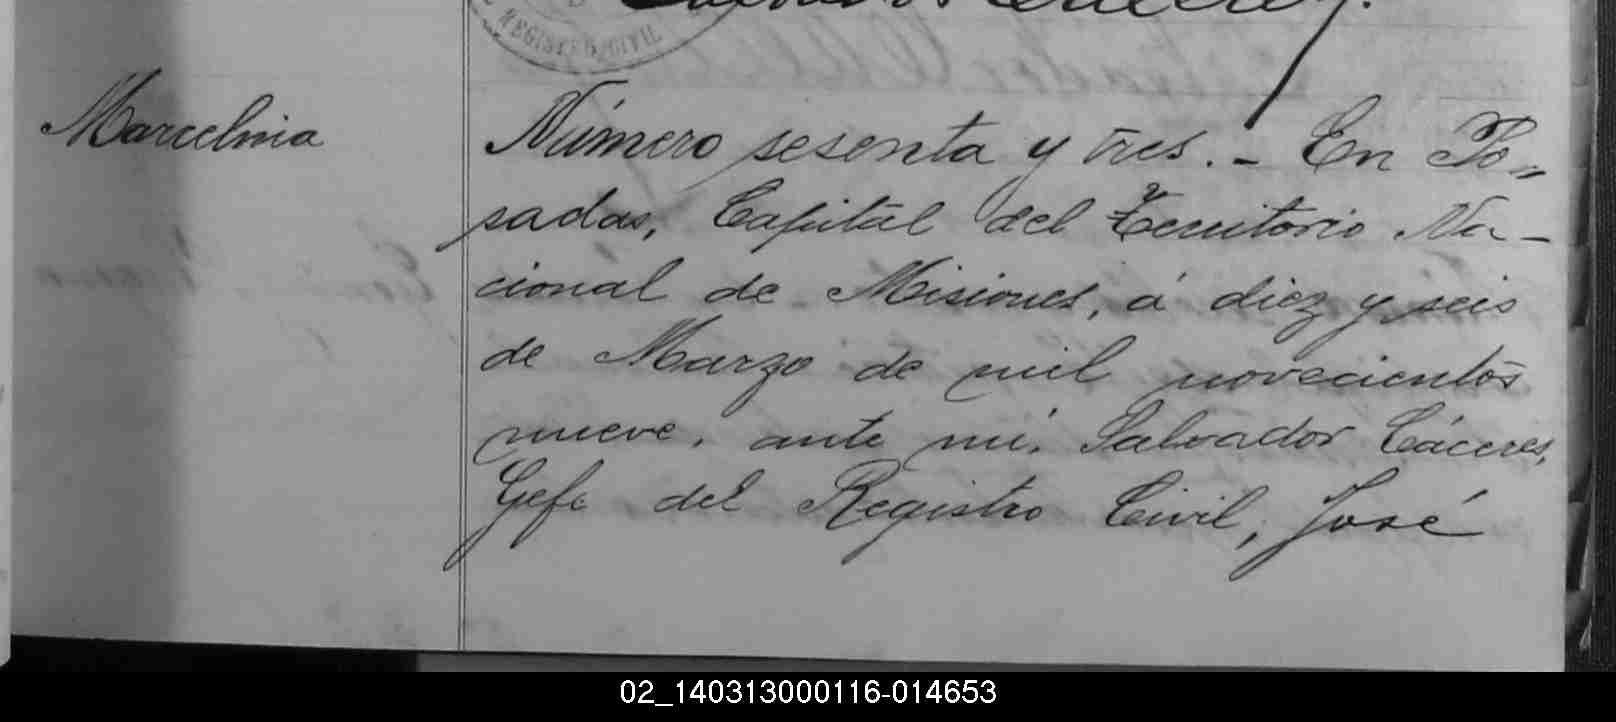 REGISTRO CIVIL
Marcelina
Número sesenta y tres. - En Po-
sadas, Capital del Territorio Na-
cional de Misiones, á diez y seis
de Marzo de mil novecientos
nueve, ante mí, Salvador Cáceres,
Gefe del Registro Civil, José
02_140313000116-014653